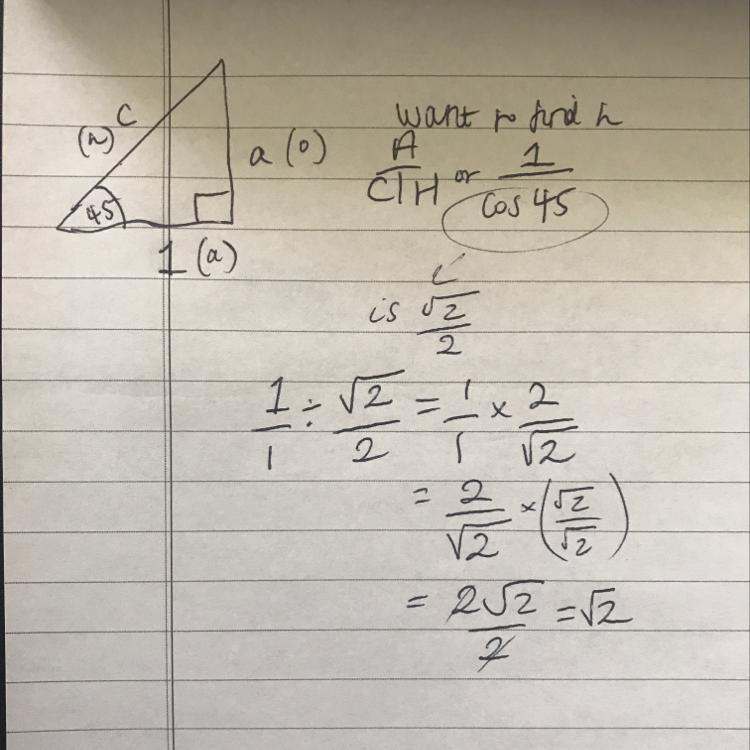 c
(h)
a (o)
45
1 (a)
want to find h
A
C | H or 1
cos 45
is √2
2
1/1 ÷ √2/2 = 1/1 × 2/√2
= 2/√2 × (√2/√2)
= 2√2/2 = √2